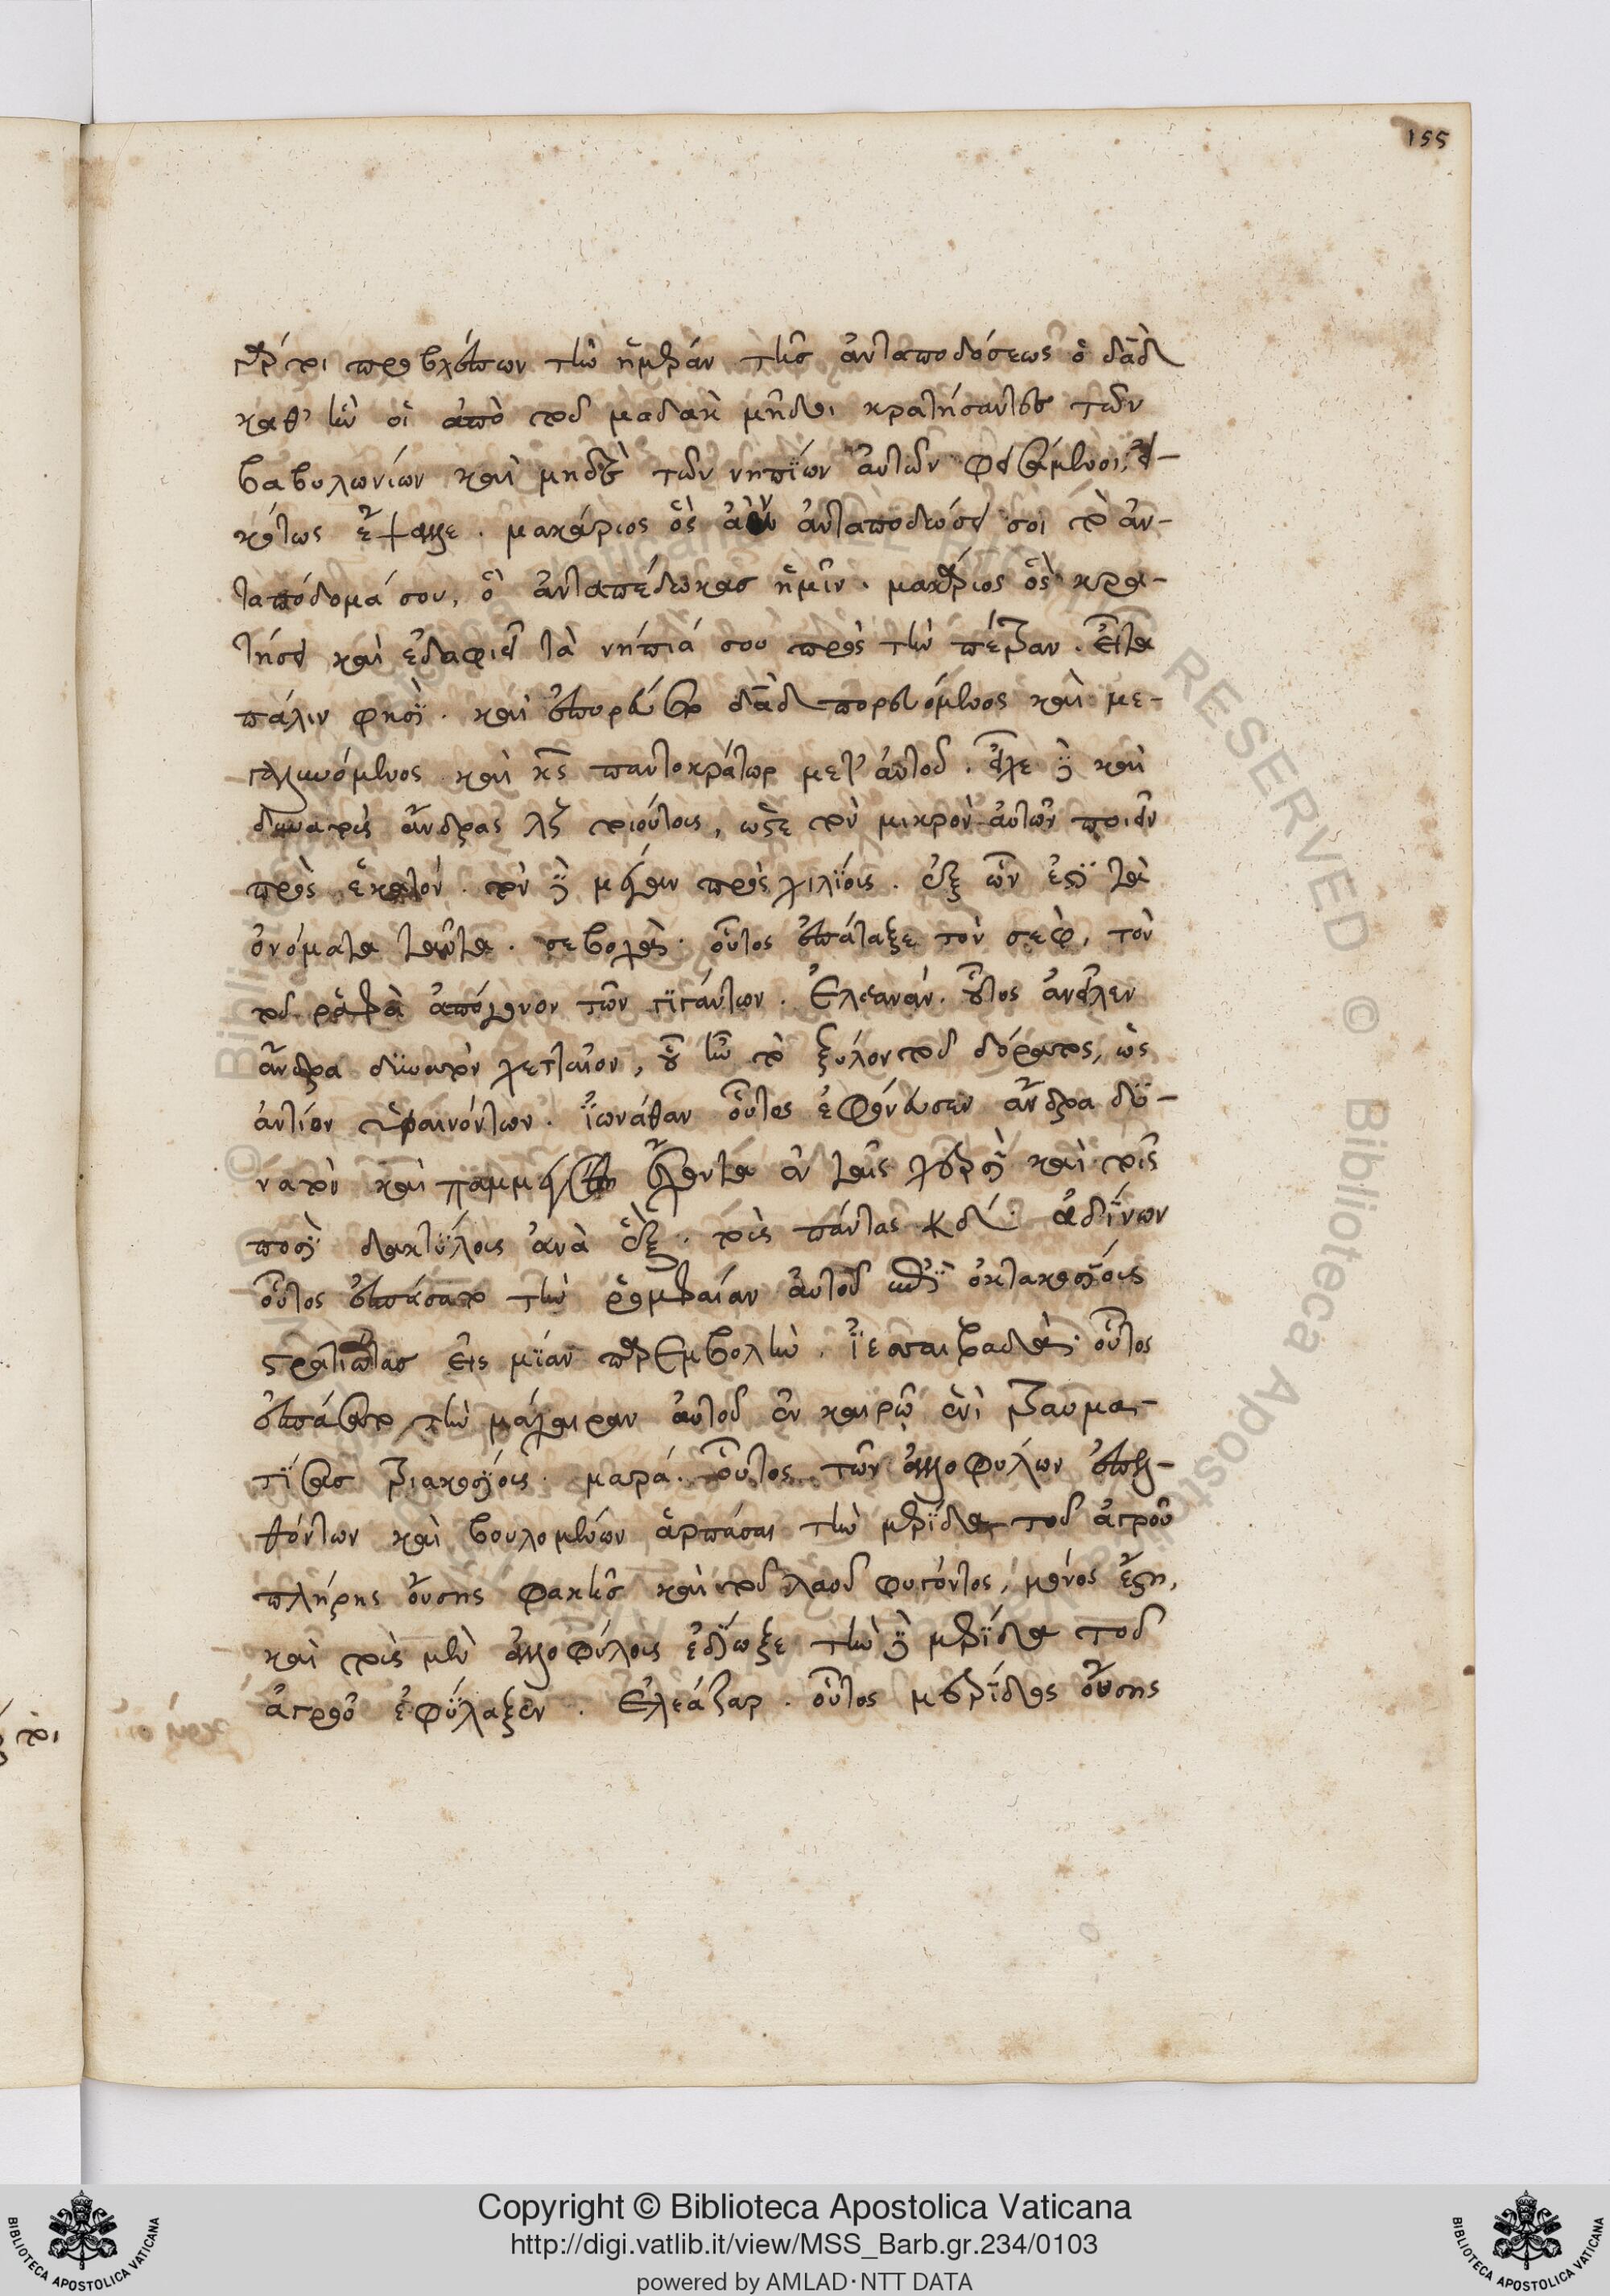 155
γάρ τοι προβλέπων τὴν ἡμέραν τῆς ἀνταποδόσεως ὁ δᾱδ
καθ' ἣν οἱ ἀπὸ τοῦ μαδαὶ μῆδοι κρατήσαντες τῶν
βαβυλωνίων καὶ μηδὲ τῶν νηπΐων αὐτῶν φεισάμενοι, εἰ-
κότως ἔψαλλε . μακάριος ὃς ἀνταποδώσει σοι τὸ ἀν-
ταπόδομά σου, ὃ ἀνταπέδωκας ἡμῖν . μακάριος ὃς κρα-
τήσει καὶ ἐδαφιεῖ τὰ νήπιά σου πρὸς τὴν πέτραν . εἶτα
πάλιν φησΐ . καὶ ἐπορεύετο δᾱδ πορευόμενος καὶ με-
γαλυνόμενος καὶ κ̅ς̅ παντοκράτωρ μετ' αὐτοῦ . εἶχε δὲ καὶ
δυνατοὺς ἄνδρας λζ τοιούτους, ὥστε τὸν μικρὸν αὐτῶν ποιεῖν
πρὸς ἑκατόν . τὸν δὲ μέγαν πρὸς χιλΐους . ἐξ ὧν ἐστΐ τὰ
ὀνόματα ταῦτα . σεβοχὰ . οὗτος ἐπάταξε τὸν σεφ, τὸν
τοῦ ῥαφὰ ἀπόγονον τῶν γιγάντων . Ἐλεανάν . οὗτος ἀνεῖλεν
ἄνδρα δυνατὸν γετθαῖον, οὗ ἦν τὸ ξύλον τοῦ δόρατος, ὡς
ἀντίον ὑφαινόντων . ἰωνάθαν οὗτος ἐφόνευσεν ἄνδρα δυ-
νατὸν καὶ παμμεγέθη ἔχοντα ἐν ταῖς χερσὶ καὶ τοῖς
ποσΐ δακτύλους ἀνὰ ἓξ . τοὺς πάντας κδ . ἀδΐνων
οὗτος ἐσπάσατο τὴν ῥομφαίαν αὐτοῦ ἐπΐ ὀκτακοσΐους
στρατιώτας εἰς μΐαν παρεμβολὴν . οὗτος
ἐσπάσατο τὴν μάχαιραν αὐτοῦ ἐν καιρῷ ἑνὶ τραυμα-
τΐσας τριακοσΐους . μαρά . οὗτος τῶν ἀλλοφύλων ἐπελ-
θόντων καὶ βουλομένων ἁρπάσαι τὴν μερΐδα τοῦ ἀγροῦ
πλήρης οὔσης φακῆς καὶ τοῦ λαοῦ φυγόντος, μόνος ἔστη,
καὶ τοὺς μὲν ἀλλοφύλους ἐδΐωξε τὴν δὲ μερΐδα τοῦ
ἀγροῦ ἐφύλαξεν . Ἐλεάζαρ . οὗτος μερΐδος οὔσης
Copyright © Biblioteca Apostolica Vaticana
http://digi.vatlib.it/view/MSS_Barb.gr.234/0103
powered by AMLAD·NTT DATA